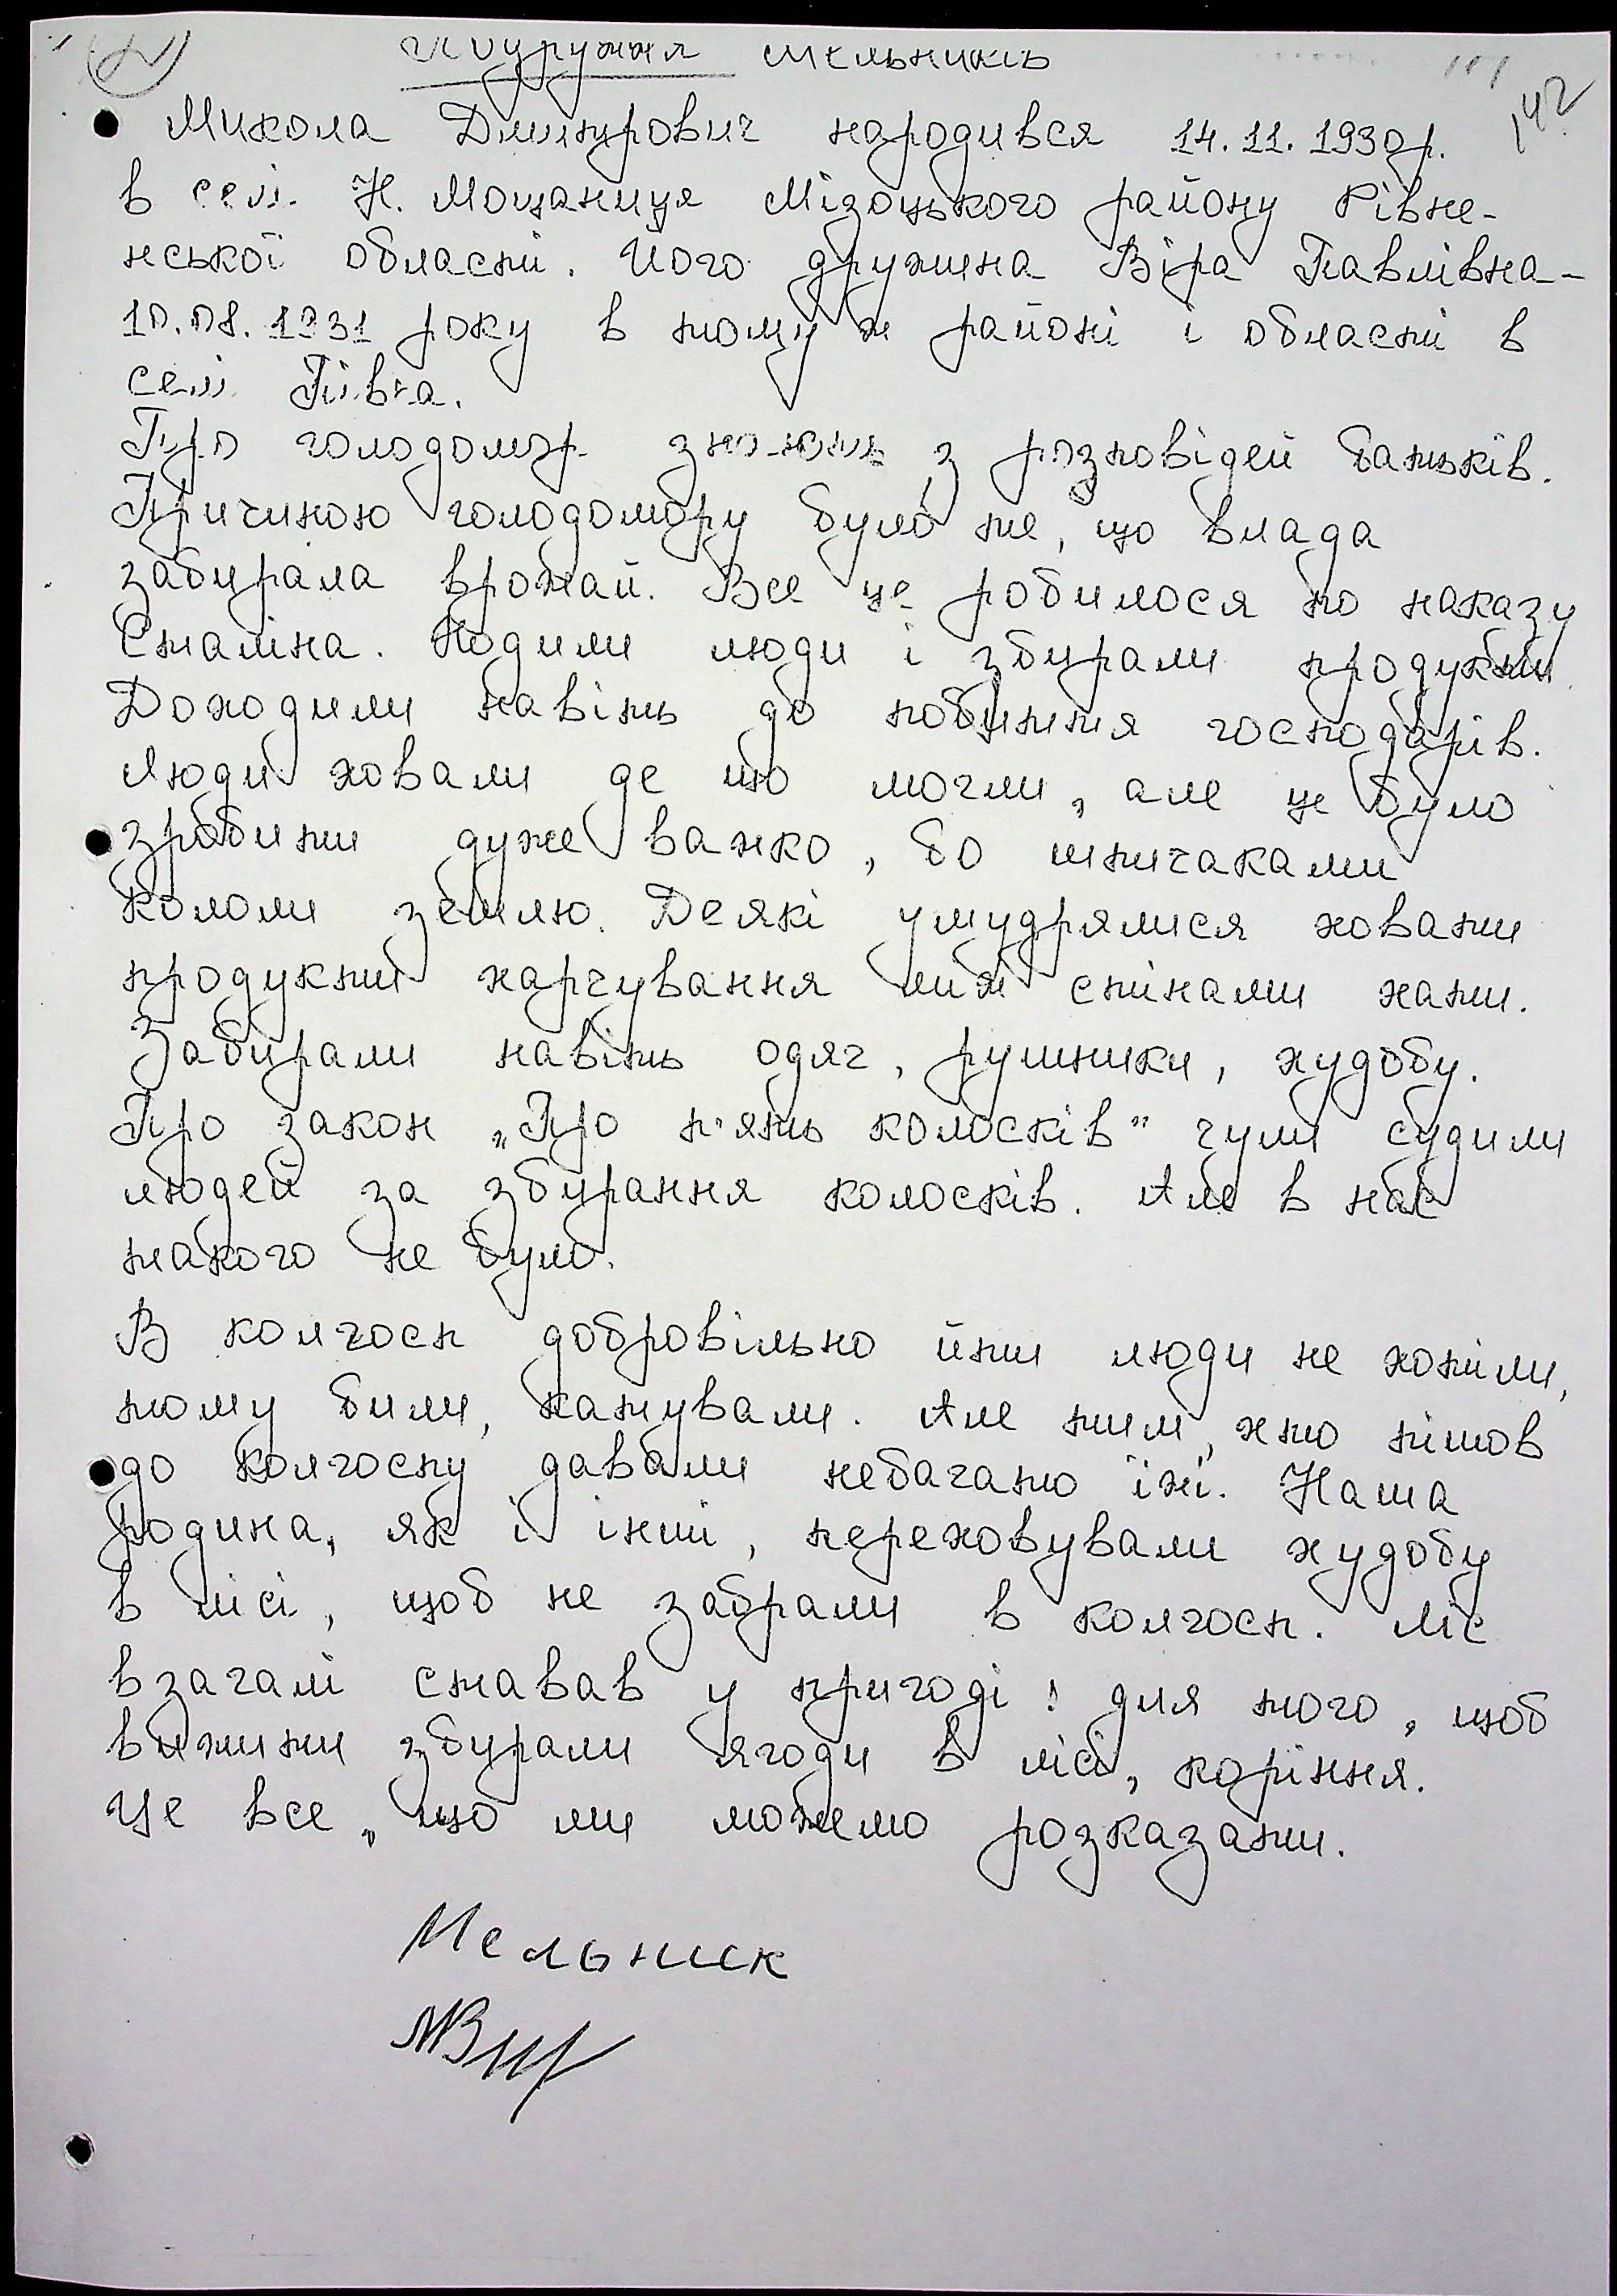 Подружжя Мельників
142
Микола Дмитрович народився 14.11.1930р.
в селі Н. Мощаниця Мізоцького району Рівне-
нської області. Його дружина Віра Павлівна -
10.08.1931 року в тому ж районі і області в
селі Півча.
Про голодомор знають з розповідей батьків.
Причиною голодомору було те, що влада
забирала врожай. Все це робилося по наказу
Сталіна. Ходили люди і збирали продукти
Доходили навіть до побиття господарів.
Люди ховали де що могли, але це було
зробити дуже важко, бо штичаками
кололи землю. Деякі умудрялися ховати
продукти харчування між стінами хати.
Забирали навіть одяг, рушники, худобу.
Про закон „Про п'ять колосків" чули судили
людей за збирання колосків. Але в нас
такого не було.
В колгосп добровільно йти люди не хотіли,
тому били, катували. Але тим, хто пішов
до колгоспу давали небагато їжі. Наша
родина, як і інші, переховували худобу
в лісі, щоб не забрали в колгосп. Ліс
взагалі ставав у пригоді: для того, щоб
вижити збирали ягоди в лісі, коріння.
Це все, що ми можемо розказати.
Мельник